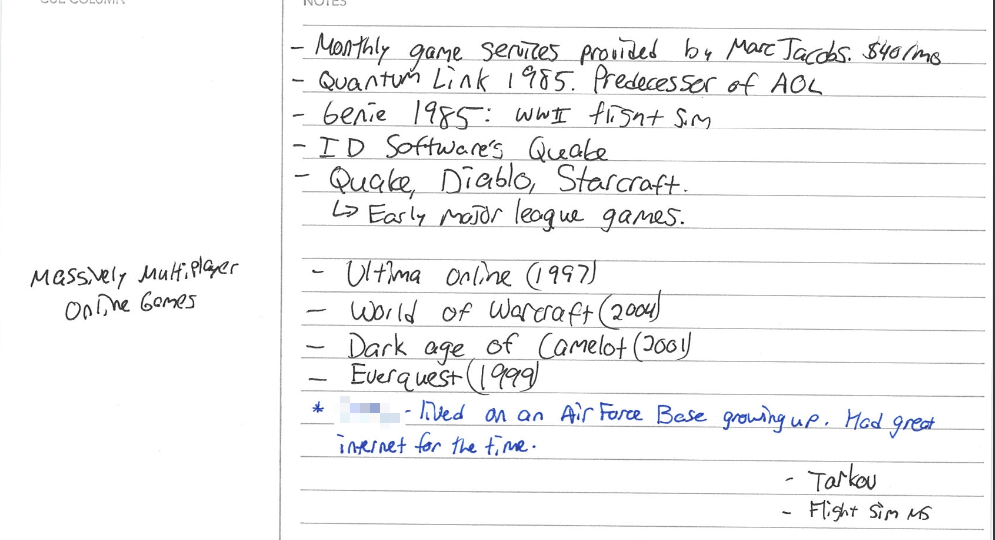 CUE COLUMN
NOTES
- Monthly game services provided by Marc Jacobs. $40/mo
- Quantum Link 1985. Predecessor of AOL
- Genie 1985: WWII flight sim
- ID Software's Quake
- Quake, Diablo, Starcraft.
↳ Early major league games.
Massively Multiplayer
Online Games
- Ultima Online (1997)
- World of Warcraft (2004)
- Dark age of Camelot (2001)
- Everquest (1999)
* - lived on an Air Force Base growing up. Had great
internet for the time.
- Tarkov
- Flight Sim MS